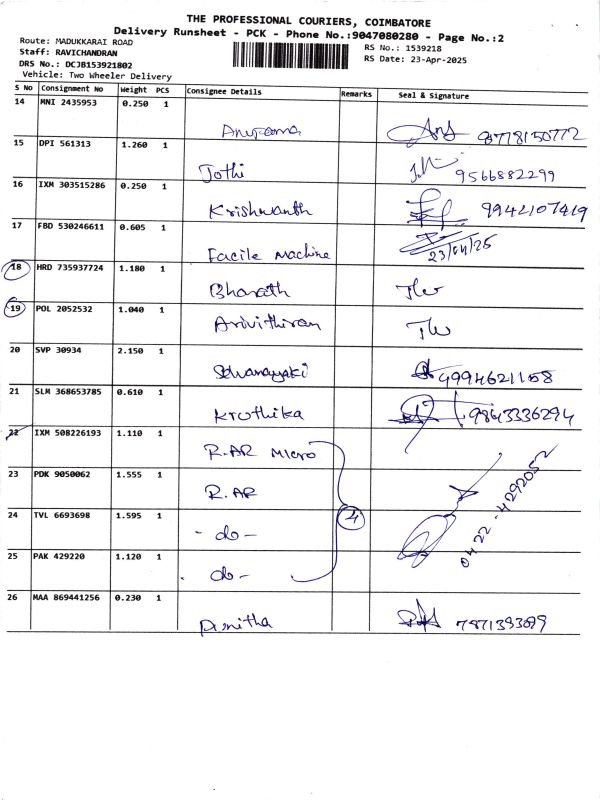 THE PROFESSIONAL COURIERS, COIMBATORE
Delivery Runsheet - PCK - Phone No.:9047080280 - Page No.:2
Route: MADUKKARAI ROAD
Staff: RAVICHANDRAN
DRS No.: DCJB153921802
Vehicle: Two Wheeler Delivery
RS No.: 1539218
RS Date: 23-Apr-2025
S No Consignment No Weight PCS Consignee Details Remarks Seal & Signature
14 MNI 2435953 0.250 1 Anupama 8778150772
15 DPI 561313 1.260 1 Jothi 9566882299
16 IXM 303515286 0.250 1 Krishwanth 9942107419
17 FBD 530246611 0.605 1 Facile Machine 23/04/25
18 HRD 735937724 1.180 1 Bharath
19 POL 2052532 1.040 1 Arivithiran
20 SVP 30934 2.150 1 4994621158
21 SLM 368653785 0.610 1 Kruthika 9843336294
22 IXM 508226193 1.110 1 R.AR Micro
23 PDK 9050062 1.555 1 R.AR
24 TVL 6693698 1.595 1 - do - 4 0422-4292052
25 PAK 429220 1.120 1 - do -
26 MAA 869441256 0.230 1